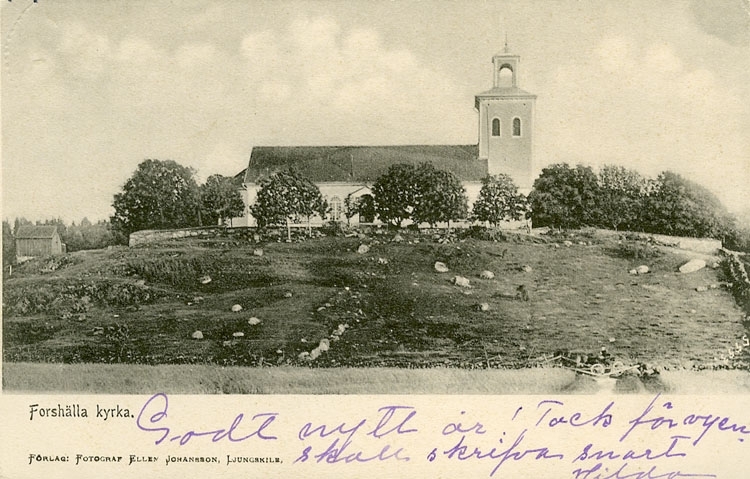 Forshälla kyrka.
Godt nytt år! Tack för vyen
skall skrifva snart
Hilda
FÖRLAG: FOTOGRAF ELLEN JOHANSSON, LJUNGSKILE.